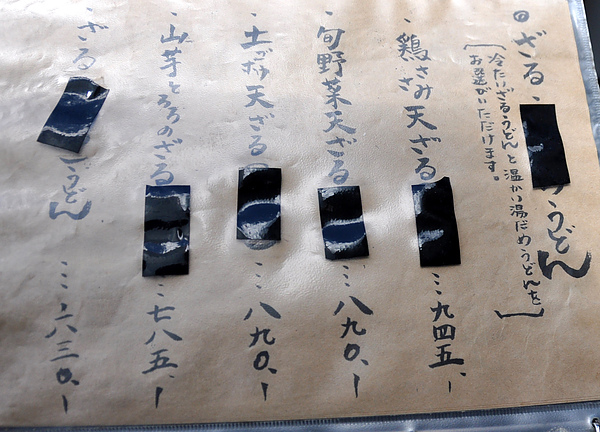 ざる うどん
冷たいざるうどんと温かい湯だめうどんを
お選びいただけます。
鶏ささみ天ざる 九四五、
旬野菜天ざる 八九〇、ー
天ざる 八九〇、ー
山芋とろろのざる 七八五、ー
ざる うどん 六三〇、ー